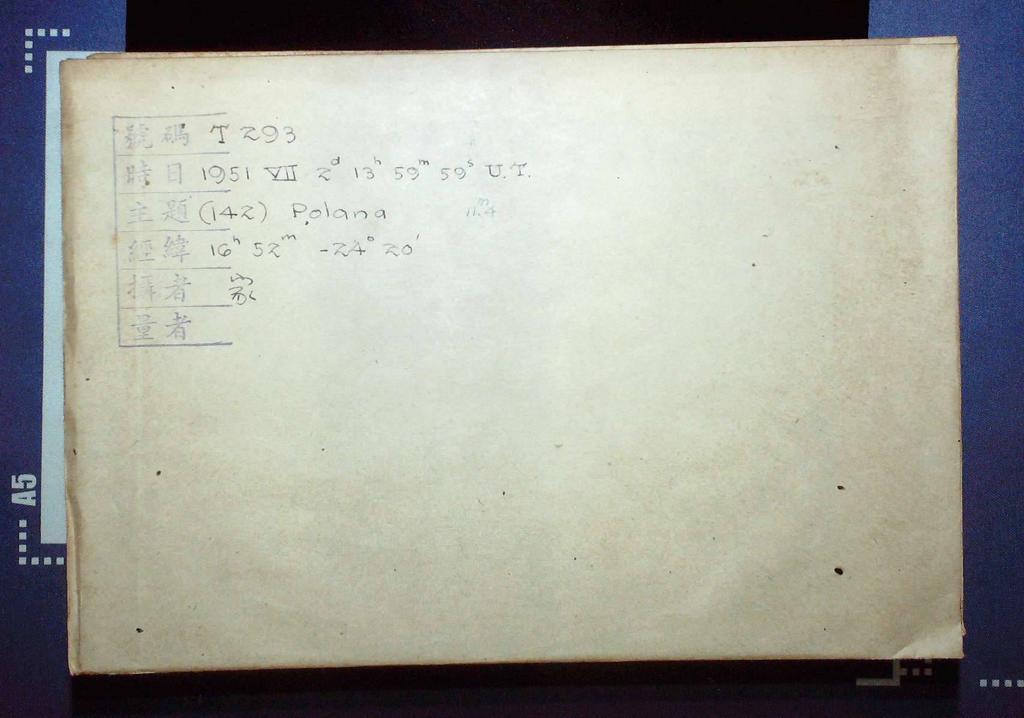 號碼 T 293
時日 1951 VII 2ᵈ 13ʰ 59ᵐ 59ˢ U.T.
主題 (142) Polana 11ᵐ.4
經緯 16ʰ 52ᵐ -24° 20'
攝者
量者
A5